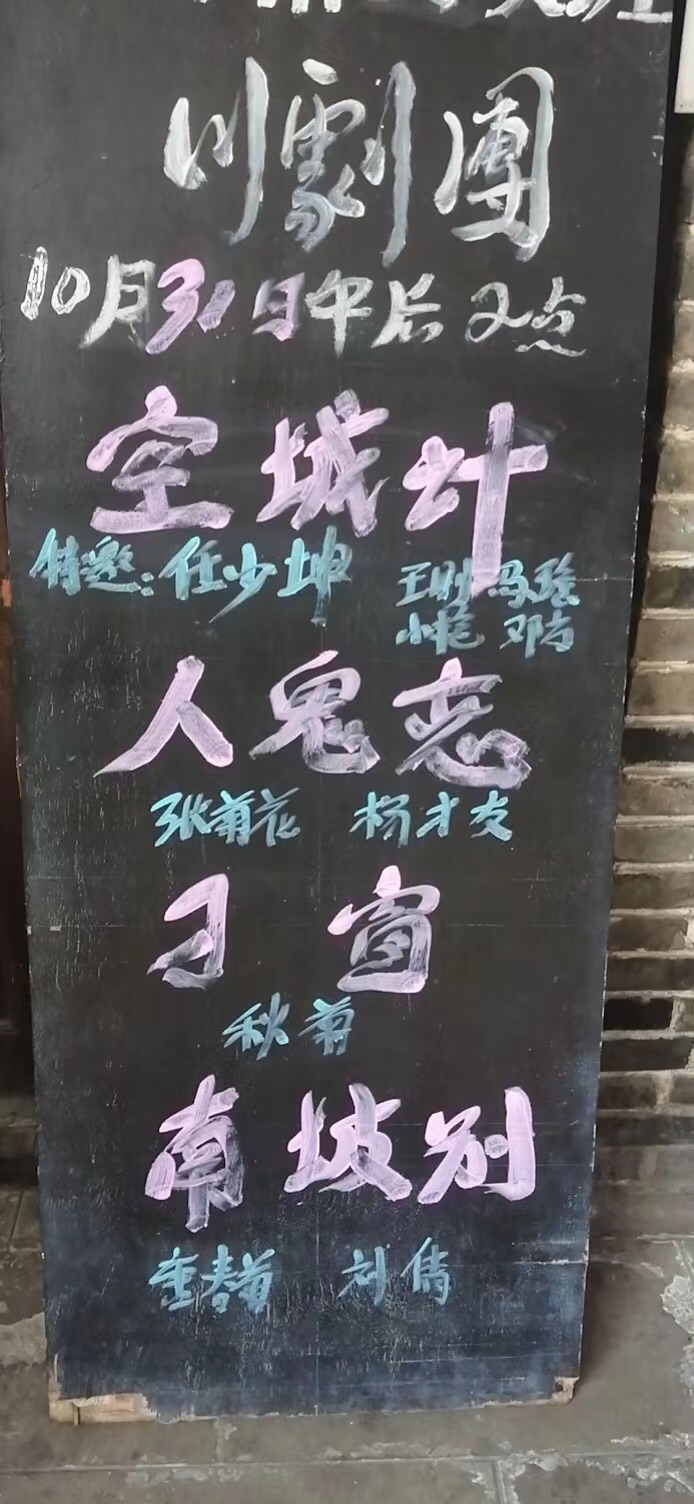 川劇團
10月31日午后2点
空城计
特邀:任少坤 王刚 马強
小艳 邓古
人鬼恋
张菊花 杨才友
刁窗
秋菊
南坡别
董春菊 刘倩